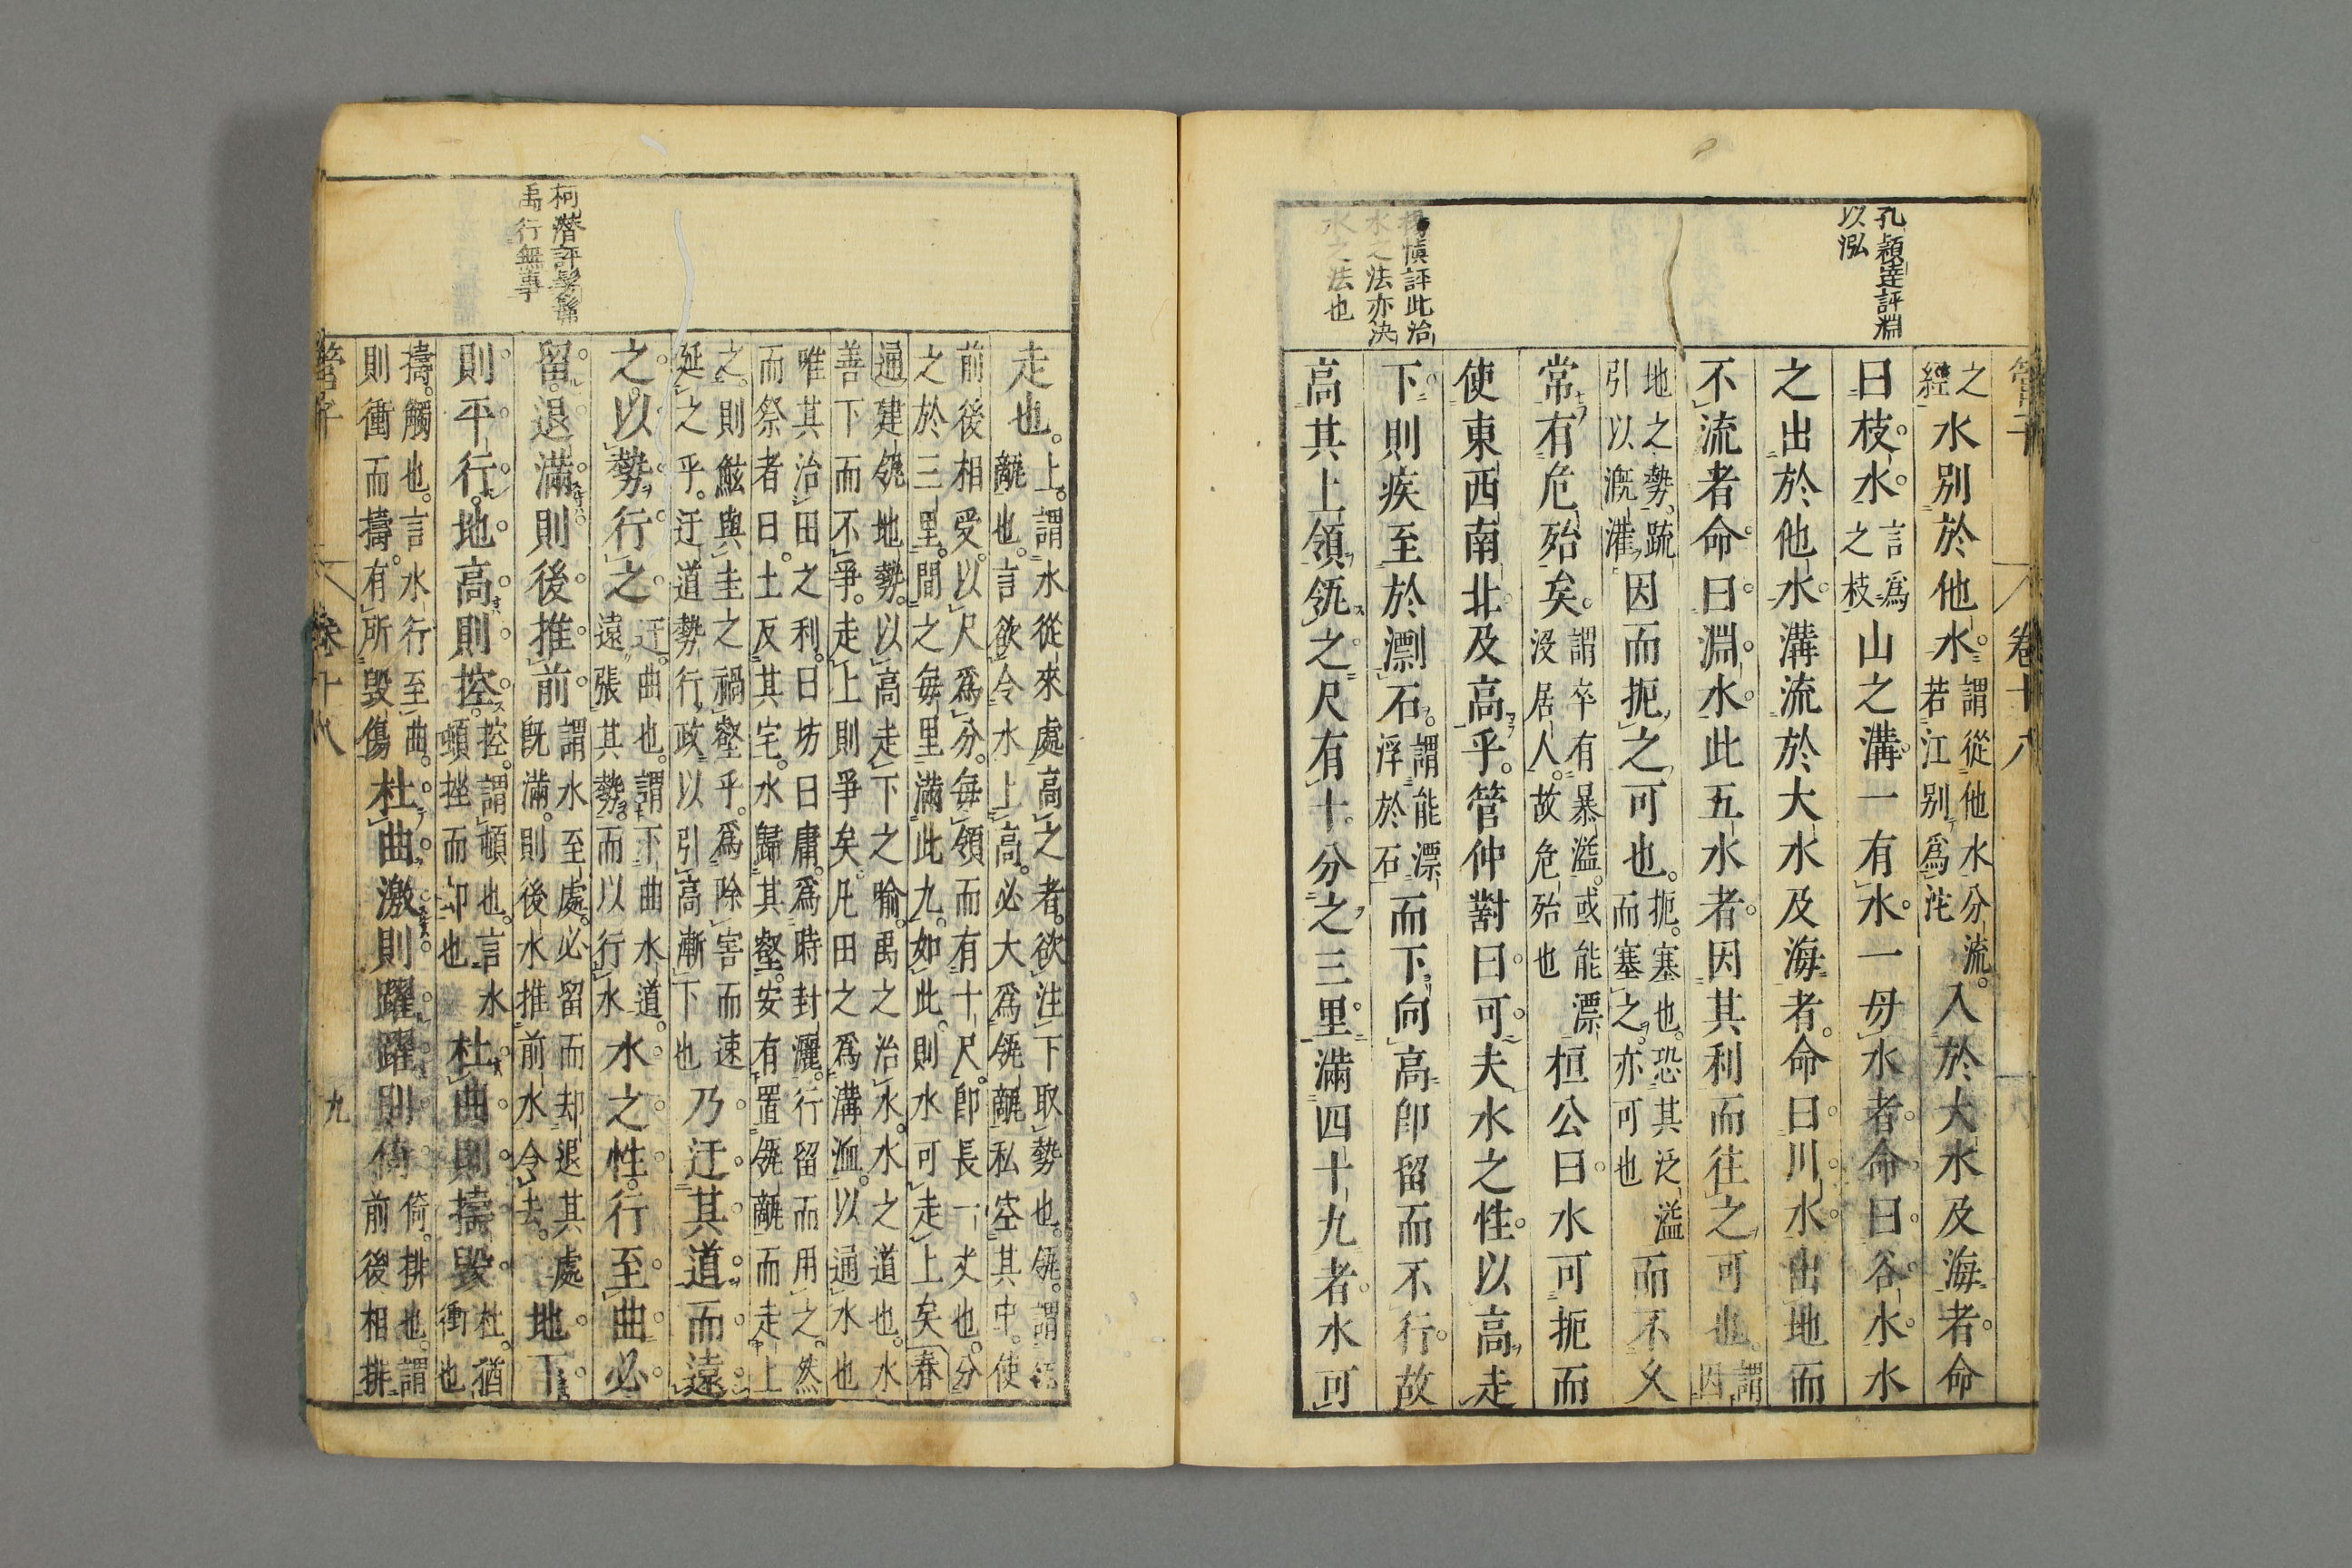 管子
卷十八
孔穎達評淵
以泓
之經水別於他水謂從他水分流若江別爲沱入於大水及海者命
曰枝水言爲之枝山之溝一有水一毋水者命曰谷水水
之出於他水溝流於大水及海者命曰川水出地而
不流者命曰淵水此五水者因其利而往之可也謂因
地之勢疏引以溉灌因而扼之可也扼塞也恐其泛溢而塞之亦可也而不久
常有危殆矣謂卒有暴溢或能漂浸居人故危殆也桓公曰水可扼而
使東西南北及高乎管仲對曰可夫水之性以高走
楊慎評此治
水之法亦決
水之法也
下則疾至於漂石謂能漂浮於石而下向高卽留而不行故
高其上領瓴之尺有十分之三里滿四十九者水可
走也上謂水從來處高之者欲注下取勢也瓴謂
甋也言欲令水上高必大爲瓴甋私空其中使
前後相受以尺爲分每領而有十尺卽長一丈也分
之於三里間之每里滿此九如此則水可走上矣春
通建瓴地勢以高走下之喻禹之治水水之道也水
善下而不爭走上則爭矣凡田之爲溝洫以通水也
唯其治田之利曰坊曰庸爲時封灑行留而用之然
而祭者曰土反其宅水歸其壑安有置瓴甋而走上
之則鯀與圭之禍壑乎爲除害而速
延之乎迂道勢行政以引高漸下也乃迂其道而遠
之以勢行之迂曲也謂下曲水道遠張其勢而以行水水之性行至曲必
柯潛評髣髴
禹行無事
留退滿則後推前謂水至處必留而却退其處旣滿則後水推前水令去地下
則平行地高則控控謂頓也言水頓挫而却也杜曲則擣毀杜猶衝也
擣觸也言水行至曲則衝而擣有所毀傷杜曲激則躍躍則倚倚排也謂前後相排
管子
卷十八
九